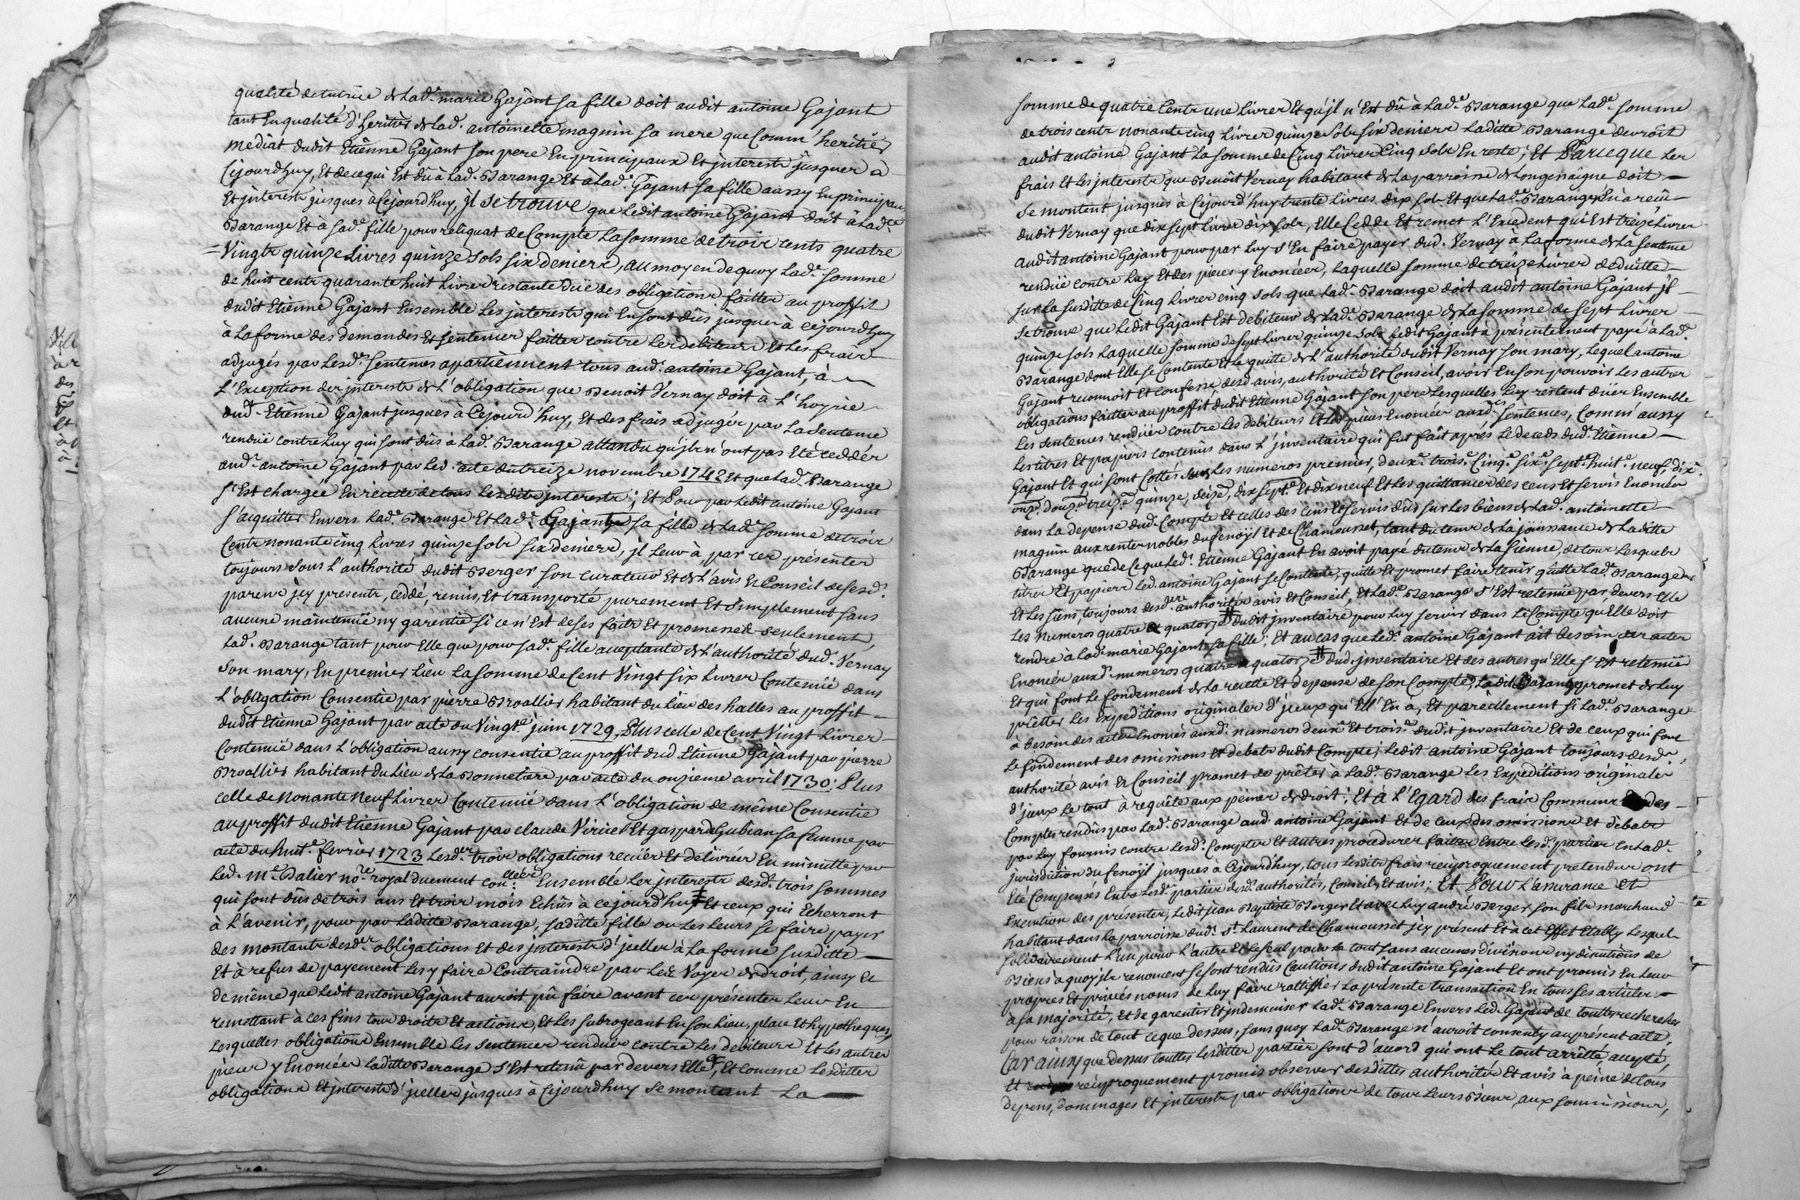 qualité de tutrice de lad.e marie Gajant sa fille doit audit antoine Gajant
tant En qualité d'heritier de lad.e antoinette maguin sa mere que Comm' heritier
mediat dudit Etienne Gajant son pere En principaux Et interests jusques à
Cejourdhuy, Et de ce qui Est dû à lad.e Barange Et à lad.e Gajant sa fille aussy En principaux
Et interests jusques à Cejourdhuy, jl se trouve que Ledit antoine Gajant doit à lad.e
Barange Et à sad.e fille pour reliquat de Compte La somme de trois cents quatre
Vingts quinze Livres quinze sols six deniers, au moyen de quoy lad.e somme
de huit cents quarante huit Livres restante düe des obligations faittes au proffit
dudit Etienne Gajant Ensemble Les interests qui En sont dûs jusques à cejourdhuy
à La forme des demandes Et sentences faittes contre Les debiteurs Et Les frais
adjugés par Lesd.es sentences apartiennent tous aud. antoine Gajant, à
L'Exception des jnterests de L'obligation que Benoit Vernay doit à L'hoyrie
dud. Etienne Gajant jusques à Cejourd'huy, Et des frais adjugés par La sentence
rendüe contre Luy qui sont dûs à lad.e Barange attandu qu'jls n'ont pas Eté ceddés
aud. antoine Gajant par Led. acte du treize novembre 1742 Et que Lad.e Barange
s'Est chargée En recette de tous Lesdits jnterests; Et Pour par Ledit antoine Gajant
s'aquitter Envers Lad.e Barange Et Lad.e Gajant sa fille de Lad.e somme de trois
Cents nonante cinq Livres quinze sols six deniers, jl Leur à par ces présentes
toujours sous L'authorité dudit Berger son curateur Et de L'avis Et Conseil de sesd.
parens jcy presents, ceddé, remis, Et transporté purement Et simplement sans
aucune maintenüe ny garentie si ce n'Est de ses faits Et promesses seulement,
Lad.e Barange tant pour Elle que pour sad.e fille aceptante de L'authorité dud. Vernay
son mary, En premier Lieu La somme de Cent Vingt six Livres Contenüe dans
L'obligation Consentie par pierre Broallier habitant du Lieu des halles au proffit
dudit Etienne Gajant par acte du Vingt.e juin 1729, Plus celle de Cent Vingt Livres
Contenüe dans L'obligation aussy consentie au proffit dud Etienne Gajant par pierre
Broallier habitant du Lieu de La Bonnetiere par acte du onzieme avril 1730; Plus
celle de Nonante Neuf Livres Contenüe dans L'obligation de même Consentie
au proffit dudit Etienne Gajant par claude Viricel Et gasparde Gubian sa femme par
acte du huit.e fevrier 1723 Lesd.es trois obligations recües Et delivrées En minutte par
Led. M.e Dalier no.re royal duement con.... Ensemble Les jnterests desd. trois sommes
qui sont dûs de trois ans Et trois mois Echûs à cejourd'huy Et ceux qui Echerront
à L'avenir, pour par Laditte Barange, saditte fille ou Les Leurs se faire payer
des montants desd.es obligations Et des jnterests d'jcelles à La forme susditte
Et à refus de payement Les y faire Contraindre par Les Voyes de droit, ainsy Et
de même que Ledit antoine Gajant auroit pû faire avant ces présentes Leur En
remettant à ces fins tous droits Et actions, Et Les subrogeant En son Lieu, place Et hypotheques,
Lesquelles obligations Ensemble Les sentences rendües contre Les debiteurs Et Les autres
pieces y Enoncées Laditte Barange s'Est retenü par devers Elle, Et comme Lesdittes
obligations Et jnterests d'jcelles jusques à Cejourdhuy se montent La
somme de quatre Cents une Livres Et qu'jl n'Est dû à Lad.e Barange que Lad.e somme
de trois cents nonante cinq Livres quinze sols six deniers Laditte Barange devroit
audit antoine Gajant La somme de Cinq Livres Cinq sols En reste; Et Parceque Les
frais Et Les jnterests que Benoit Vernay habitant de La parroisse de Longessaigne doit
se montent jusques à Cejourd'huy trente Livres dix sols Et que Lad.e Barange n'a reçu
dudit Vernay que dix sept Livres dix sols, Elle Cedde Et remet L'Excedent qui Est treize Livres
audit antoine Gajant pour par Luy s'En faire payer dud. Vernay à La forme de La sentence
rendüe contre Luy Et des pieces y Enoncées, Laquelle somme de treize Livres deduitte
sur La susditte de Cinq Livres cinq sols que Lad.e Barange doit audit antoine Gajant jl
se trouve que Ledit Gajant Est debiteur de Lad.e Barange de La somme de sept Livres
quinze sols Laquelle somme de sept Livres quinze sols Ledit Gajant à présentement payé à Lad.e
Barange dont Elle se Contente Et Le quitte de L'authorité dudit Vernay son mary, Lequel antoine
Gajant reconnoit Et confesse desd. avis, authorité Et Conseil, avoir En son pouvoir Les autres
obligations faittes au proffit dudit Etienne Gajant son pere Lesquelles Luy restent düer Ensemble
Les sentences rendües contre Les debiteurs Et Les pieces Enoncées auxd.es sentences, Comm' aussy
Les titres Et papiers contenus dans L'jnventaire qui fut fait aprés Le deceds dud. Etienne
Gajant Et qui sont Cottés sous Les numeros premier, deux.e trois.e Cinq.e six.e sept.e huit.e neuf, dix.e
onz.e douz.e treiz.e quinze, seize, dix sept.e Et dix neuf Et Les quittances des cens Et servis Enoncées
dans La depense dud. Compte Et celles des cens Et servis dûs sur Les biens de Lad.e antoinette
maguin aux rentes nobles du fenoÿl Et de Chamousset, tant du tems de La joüissance de Laditte
Barange que de ce que Led. Etienne Gajant En avoit payé du tems de La sienne, de tous Lesquels
titres Et papiers Led. antoine Gajant se Contente, quitte Et promet faire tenir quitte Lad.e Barange
Et Les siens toujours desd.es authorité avis Et Conseil, Et Lad.e Barange s'Est retenüe par devers Elle
Les Numeros quatre & quatorze dudit jnventaire pour Luy servir dans Le Compte qu'Elle doit
rendre à Lad.e marie Gajant sa fille; Et au cas que Led. antoine Gajant ait besoin des actes
Enoncés auxd. numeros quatre & quatorze dud. jnventaire Et des autres qu'Elle s'Est retenüe
Et qui font Le fondement de La recette Et depense de son Compte, Ladite Barange promet de Luy
pretter Les Expeditions originales d'jceux qu'Ell' En a, Et pareillement si Lad.e Barange
à besoin des actes Enoncés auxd. numeros deux.e Et trois.e dudit jnventaire Et de ceux qui font
Le fondement des omissions Et debats dudit Compte; Ledit antoine Gajant toujours desd.
authorité avis Et Conseil promet de prêter à Lad.e Barange Les Expeditions originales
d'jceux Le tout à requête aux peines de droit; Et à L'Egard des frais Communs des
Comptes rendus par Lad.e Barange aud. antoine Gajant Et de ceux des omissions Et debats
par Luy fournis contre Lesd. Comptes Et autres procedures faittes Entre Lesd. parties En Lad.e
jurisdiction du fenoÿl jusques à Cejourdhuy, tous Lesdits frais reciproquement pretendus ont
Eté Compensés Entre Lesd. parties desd. authorités, Conseils Et avis; Et Pour L'assurance Et
Execution des présentes, Ledit jean Baptiste Berger Et avec Luy andré Berger son fils marchand
habitant dans La parroisse dud. S.t Laurent de Chamousset jcy présent Et à cet Effet Etably Lesquels
solidairement L'un pour L'autre Et Le seul pour Le tout sans aucunes divisions ny discutions de
Biens à quoy jls renoncent se sont rendûs Cautions dudit antoine Gajant Et ont promis En Leurs
propres Et privés noms de Luy faire rattiffier La présente transaction En tous ses articles
à sa majorité, Et de garentir Et jndemniser Lad.e Barange Envers Led. Gajant de touttes recherches
pour raison de tout ce que dessus, sans quoy Lad.e Barange n'auroit consenty au présent acte,
Car ainsy que dessus touttes Lesdittes parties sont d'acord qui ont Le tout arretté accepté,
reciproquement promis observer desdittes authorités Et avis à peine de tous
depens, dommages Et jnterests par obligation de tous Leurs Biens, aux soumissions,